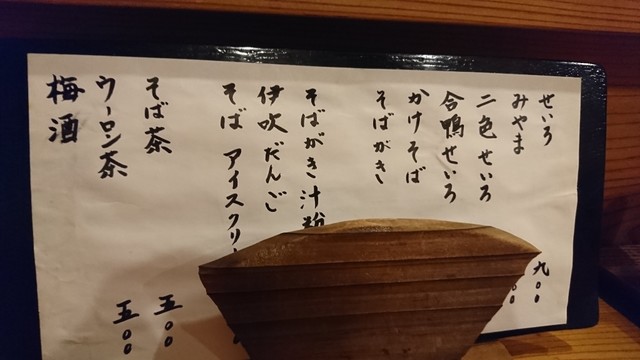 せいろ 九〇〇
みやま
二色せいろ
合鴨せいろ
かけそば
そばがき
そばがき汁粉
伊吹だんご
そば アイスクリー
そば茶 五〇〇
ウーロン茶 五〇〇
梅酒